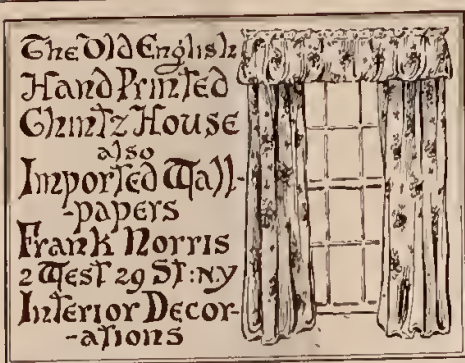 The Old English
Hand Printed
Chintz House
also
Imported Wall-
-papers
Frank Norris
2 West 29 St: NY
Interior Decor-
-ations